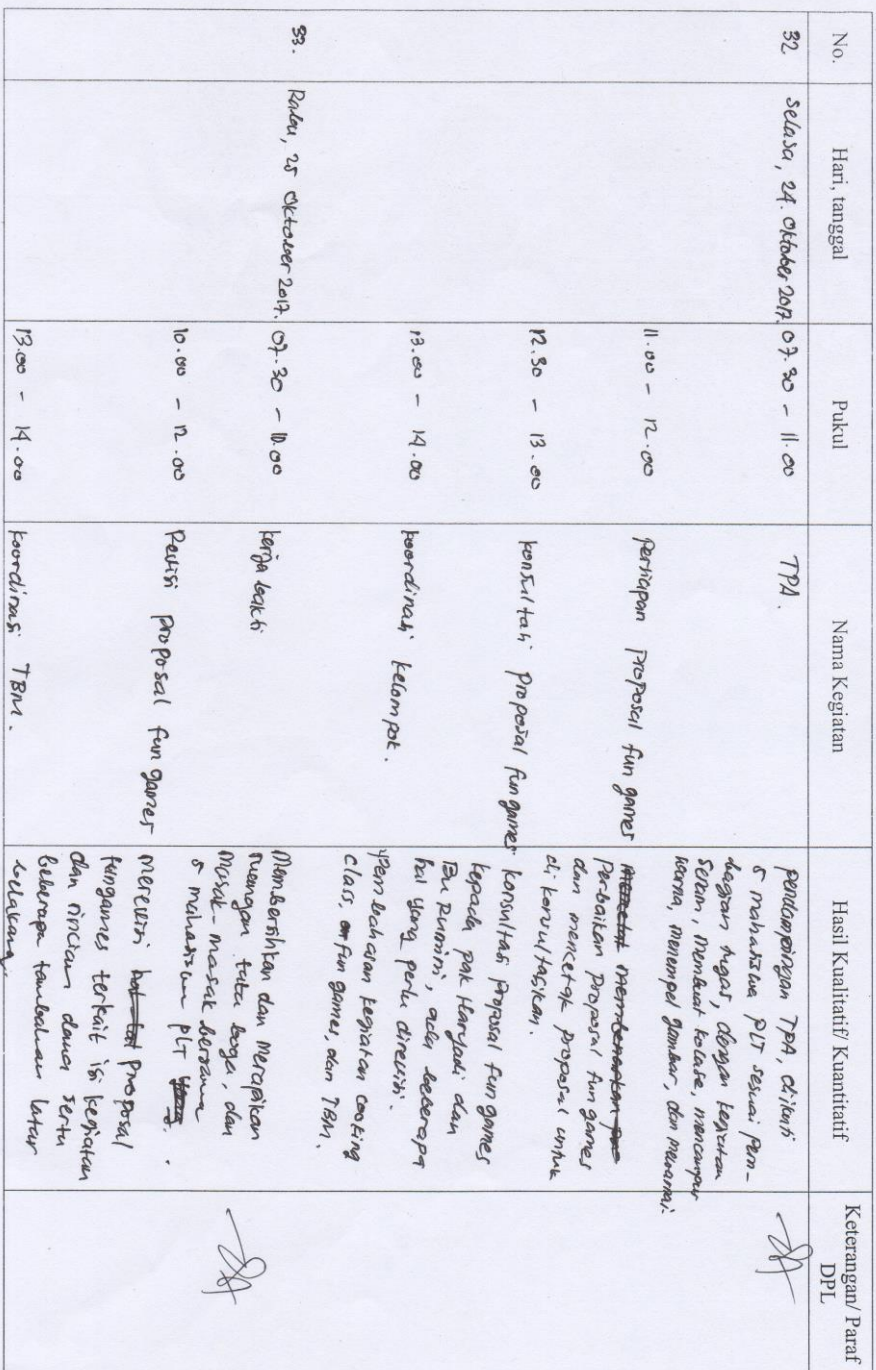 No.
Hari, tanggal
Pukul
Nama Kegiatan
Hasil Kualitatif/ Kuantitatif
Keterangan/ Paraf
DPL
32
Selasa, 24. Oktober 2017.
07.30 - 11.00
TPA.
pendampingan TPA, diikuti
5 mahasiswa PLT sesuai pem-
bagian tugas, dengan kegiatan
senam, membuat kolase, mencampur
warna, menempel gambar, dan mewarnai
11.00 - 12.00
persiapan proposal fun games
perbaikan proposal fun games
dan mencetak proposal untuk
di konsultasikan.
12.30 - 13.00
konsultasi proposal fun games
konsultasi proposal fun games
kepada pak Haryadi dan
Bu Rumini, ada beberapa
hal yang perlu direvisi.
13.00 - 14.00
koordinasi kelompok.
Pembahasan kegiatan cooking
class, fun games, dan TBM.
33.
Rabu, 25 Oktober 2017.
07.30 - 10.00
kerja bakti
Membersihkan dan Merapikan
ruangan tata boga, dan
masak-masak bersama
5 mahasiswa PLT
10.00 - 12.00
Revisi proposal fun games
merevisi proposal
fungames terkait isi kegiatan
dan rincian dana serta
beberapa tambahan latar
belakang.
13.00 - 14.00
koordinasi TBM.